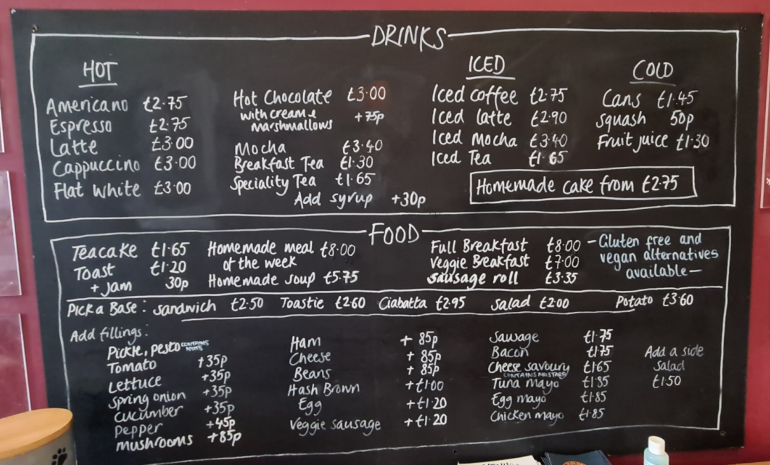 DRINKS
HOT
Americano £2.75
Espresso £2.75
Latte £3.00
Cappuccino £3.00
Flat White £3.00
Hot Chocolate £3.00
with cream & marshmallows +75p
Mocha £3.40
Breakfast Tea £1.30
Speciality Tea £1.65
Add syrup +30p
ICED
Iced coffee £2.75
Iced latte £2.90
Iced Mocha £3.40
Iced Tea £1.65
COLD
Cans £1.45
Squash 50p
Fruit juice £1.30
Homemade cake from £2.75
FOOD
Teacake £1.65
Toast £1.20
+ jam 30p
Homemade meal of the week £8.00
Homemade soup £5.75
Full Breakfast £8.00
Veggie Breakfast £7.00
Sausage roll £3.35
—Gluten free and
vegan alternatives
available—
Pick a Base: Sandwich £2.50 Toastie £2.60 Ciabatta £2.95 Salad £2.00 Potato £3.60
Add fillings:
Pickle, pesto
Tomato +35p
Lettuce +35p
Spring onion +35p
Cucumber +35p
Pepper +45p
Mushrooms +85p
Ham + 85p
Cheese + 85p
Beans + 85p
Hash Brown +£1.00
Egg +£1.20
Veggie sausage +£1.20
Sausage £1.75
Bacon £1.75
Cheese savoury £1.65
CONTAINS MUSTARD
Tuna mayo
Egg mayo £1.85
Chicken mayo £1.85
Add a side
salad
£1.50